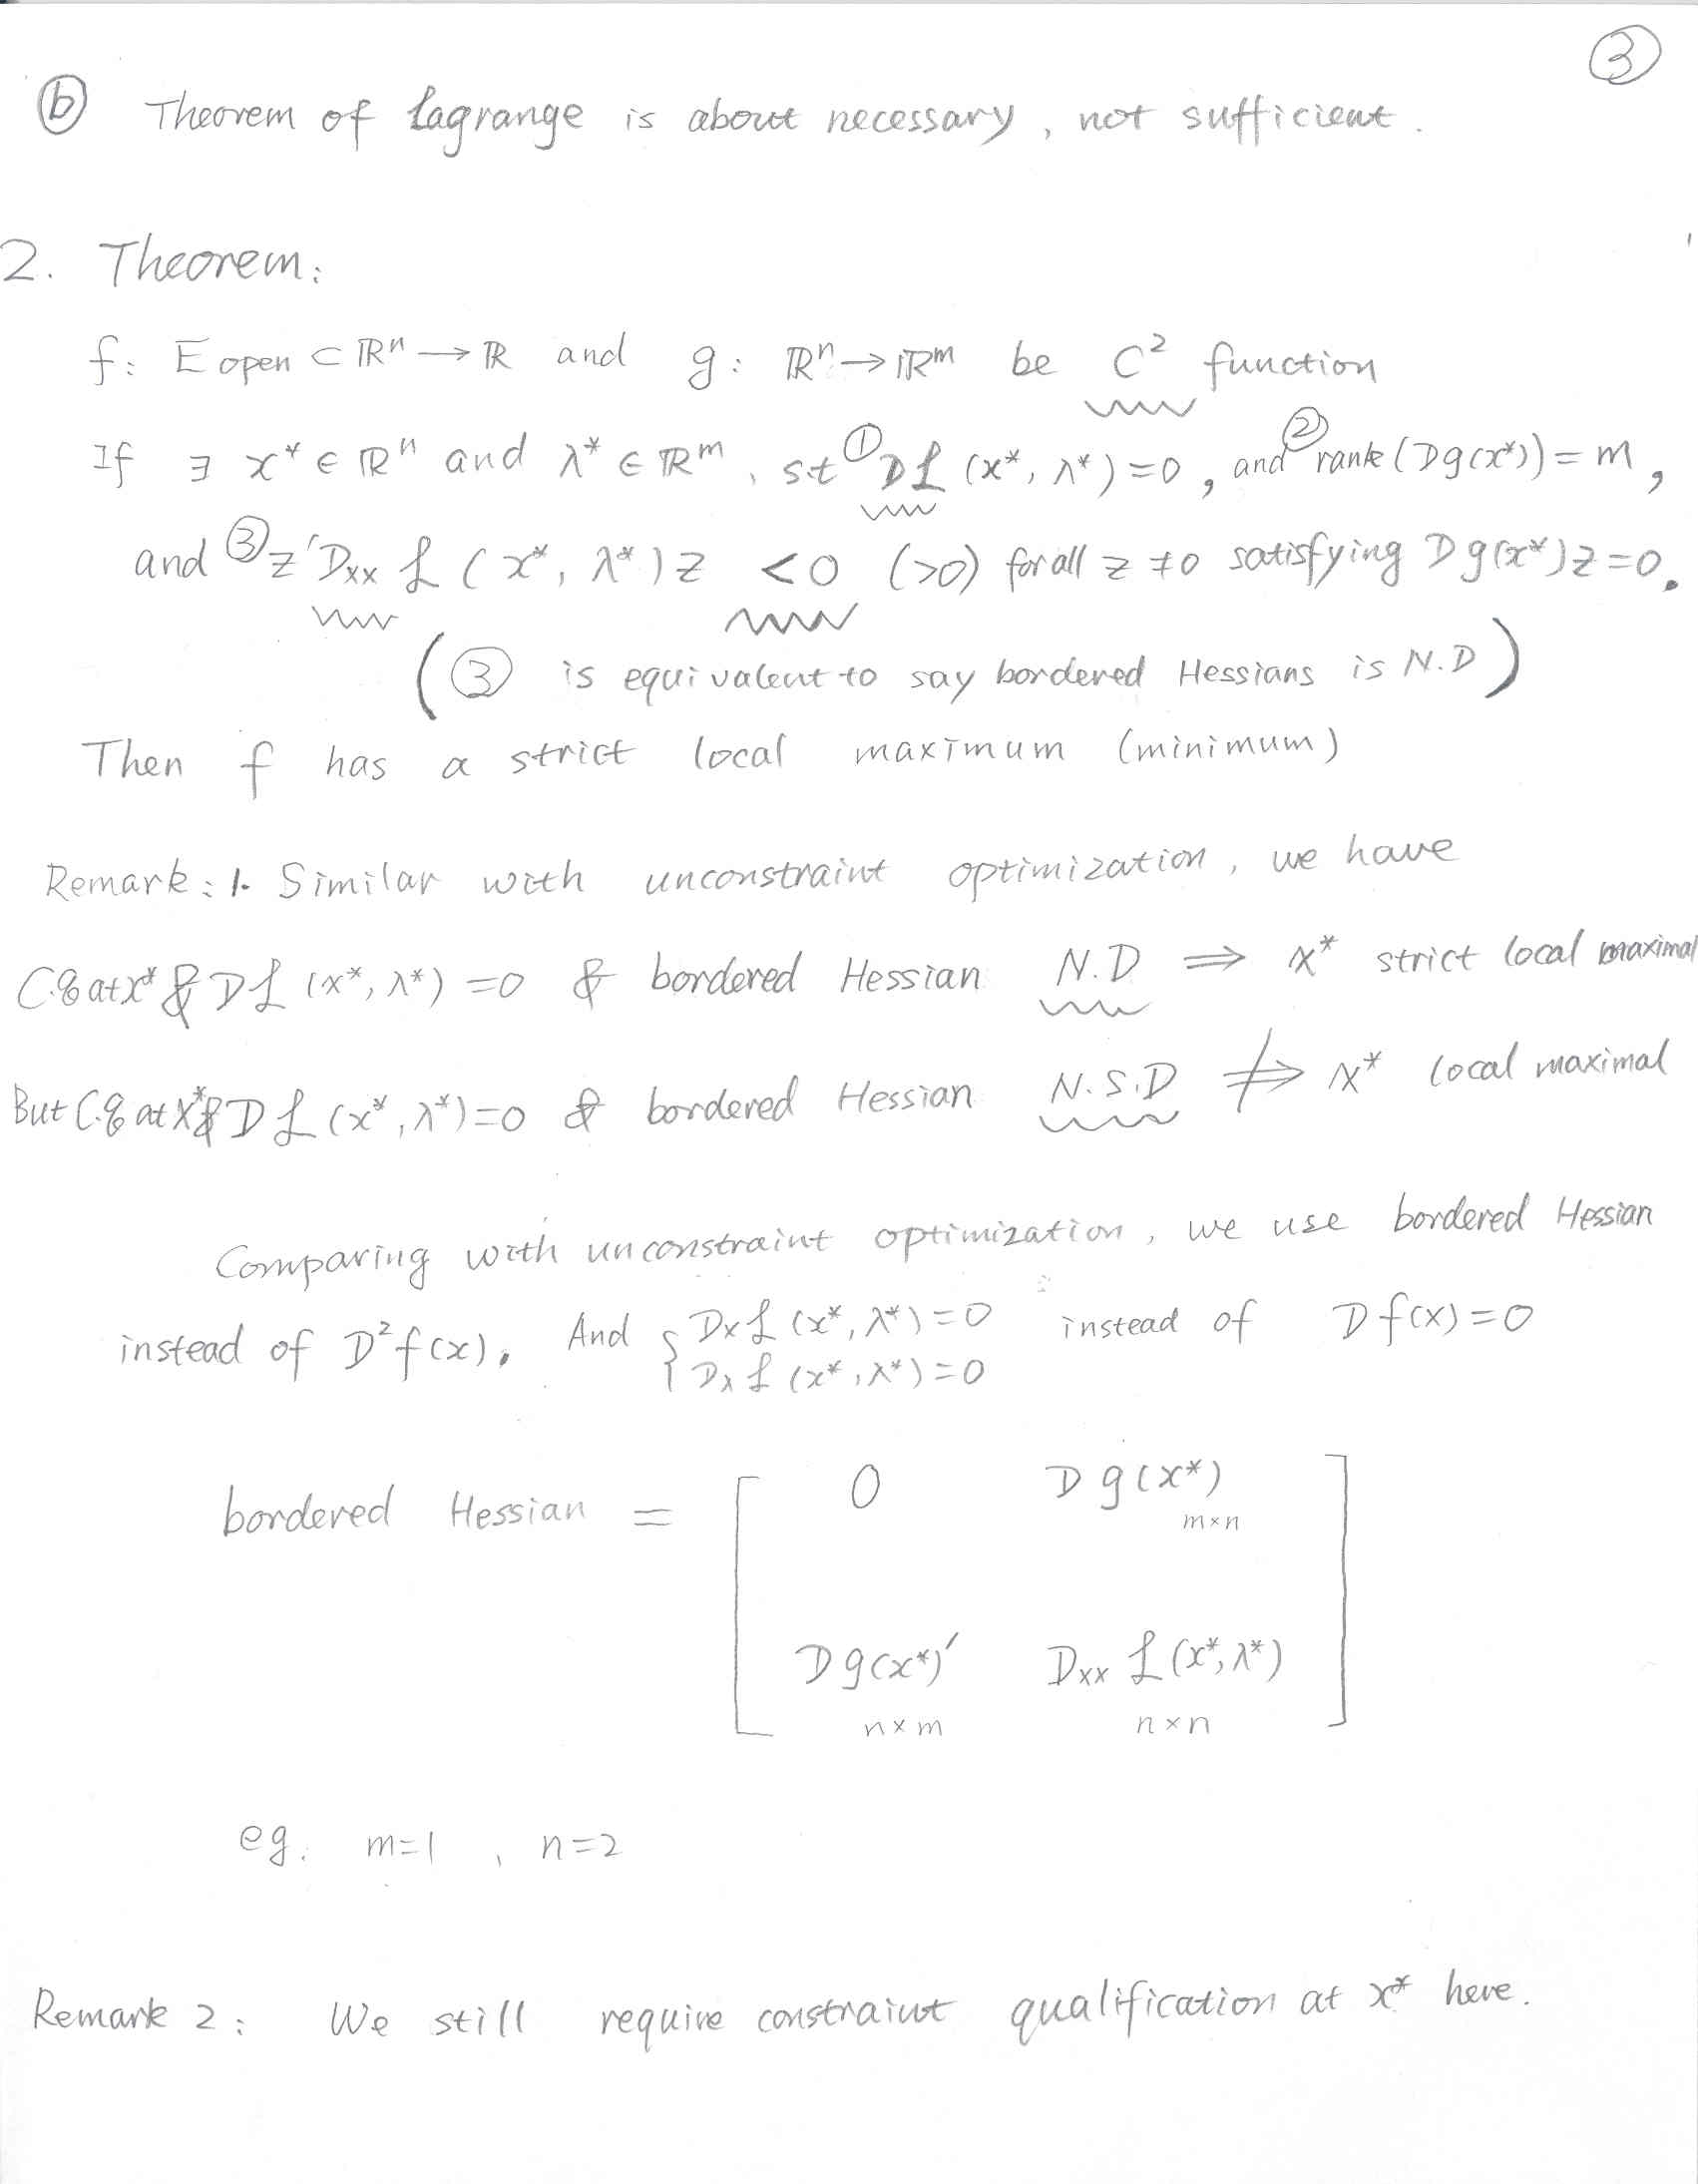 ③
ⓑ Theorem of Lagrange is about necessary, not sufficient.
2. Theorem:
f: E open ⊂ ℝⁿ → ℝ and g: ℝⁿ → ℝᵐ be C² function
If ∃ x* ∈ ℝⁿ and λ* ∈ ℝᵐ, s.t ① Dℒ(x*, λ*) = 0, and ② rank(Dg(x*)) = m,
and ③ z′Dxxℒ(x*, λ*)z < 0 (>0) for all z ≠ 0 satisfying Dg(x*)z = 0.
(③ is equivalent to say bordered Hessians is N.D)
Then f has a strict local maximum (minimum)
Remark: 1. Similar with unconstraint optimization, we have
C.q at x* & Dℒ(x*, λ*) = 0 & bordered Hessian N.D ⇒ x* strict local maximal
But C.q at x* & Dℒ(x*, λ*) = 0 & bordered Hessian N.S.D ⇏ x* local maximal
Comparing with unconstraint optimization, we use bordered Hessian
instead of D²f(x). And { Dxℒ(x*, λ*) = 0 instead of Df(x) = 0
Dλℒ(x*, λ*) = 0
bordered Hessian = [ 0 Dg(x*)
m×n
Dg(x*)′ Dxxℒ(x*, λ*) ]
n×m n×n
eg. m=1, n=2
Remark 2: We still require constraint qualification at x* here.